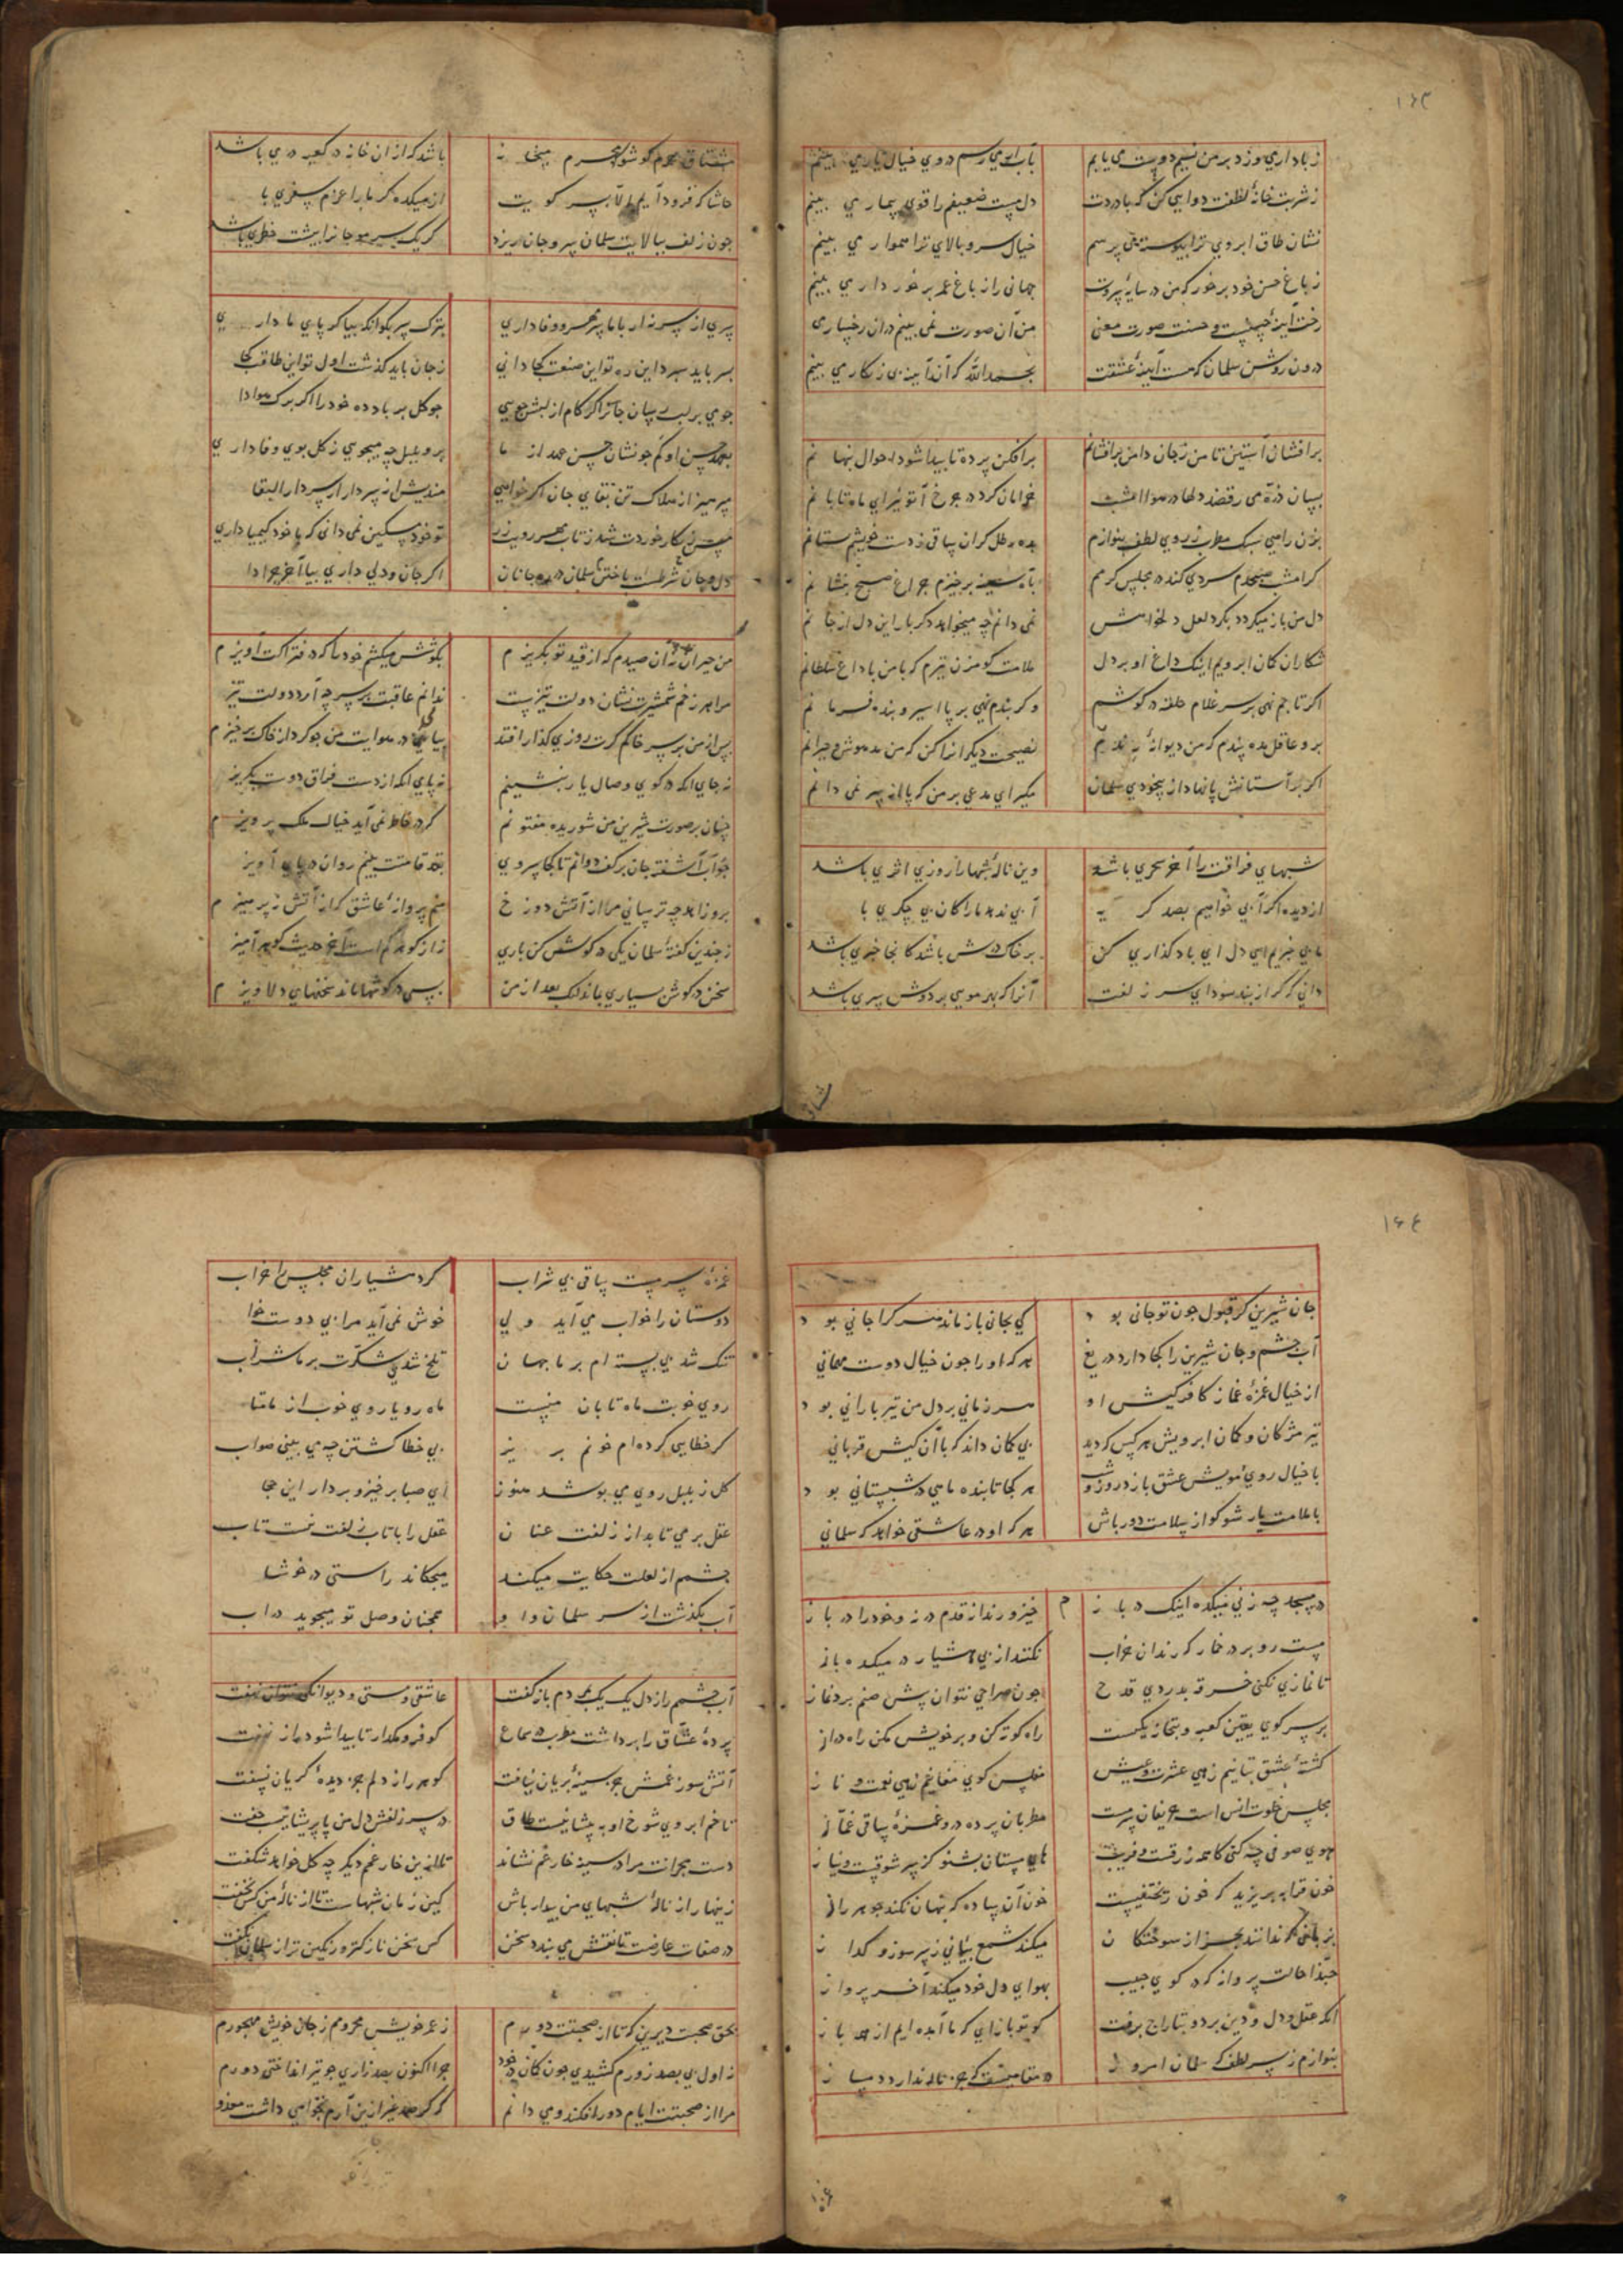 ۱۶۳
ز باد اری وزد بر من نسیم دوست می یابم بآب ار می رسم دروی خیال یاری بینم
ز شربت خانهٔ لطفت دوایی کن که با دردت دل مست ضعیفم را قوی بیماری بینم
نشان طاق ابروی ترا پیوسته می پرسم خیال سرو بالای ترا هموار می بینم
ز باغ حسن خود بر خور که من در سایهٔ سروت جهانی را ز باغ عمر برخورداری بینم
رخت آینهٔ چینست و حسنت صورت معنی من آن صورت نمی بینم در آن رخساری
درون روشن سلمان که هست آیینهٔ عشقت بحمدالله که آن آیینه بی زنگاری بینم
برافشان آستین تا من ز جان دامن برافشانم برافکن پرده تا پیدا شود احوال پنهانم
بسان ذره می رقصند دلها در هوا امشب خرامان کرد در چرخ آ تو نیز ای ماه تابانم
بزن راهی سبک مطرب ز روی لطف بنوازم بده رطل گران ساقی ز دست خویش بستانم
گر امشب صبحدم سردی کند در مجلس گرمم بآه سینه برخیزم چراغ صبح بنشانم
دل من باز میگردد بگرد لعل دلخواهش نمی دانم چه میخواهد دگر بار این دل از جانم
شکاران کمان ابرویم اینک داغ او بر دل ملامت گو مزن تیرم که با من با داغ سلطانم
اگر تاجم نهی بر سر غلام حلقه در گوشم و گر بندم نهی بر پا اسیر و بنده فرمانم
برو عاقل مده پندم که من دیوانهٔ نه نصیحت دیگرانرا کن که من مدهوش و حیرانم
اگر بر آستانش پا نهاد از بیخودی سلمان مگیر ای مدعی بر من که پا از سر نمی دانم
شبهای فراقت را آخر سحری باشد وین نالهٔ شبها را روزی اثری باشد
از دیده اگر آبی خواهیم بصد گریه آبی ندهد ما را کان بی جگری با
ما بی خبریم ای دل ای باد گذاری کن بر خاک درش باشد کانجا خبری باشد
دانی که گر از بند سودای سر زلفت آنرا که بهر مویی بر دوش سری باشد
مشتاق حرم گو شو محرم میخانه باشد که از ان خانه در کعبه دری باشد
حاشا که فرود آیم الا بسر کویت از میکده گر ما را عزم سفری با
چون زلف ببالایت سلمان سر و جان ریزد گر یک سر مو جانرا پیشت خطری باشد
پری از سر نه ار با ما سر مهر و وفا داری بترک سر بگو انگه بیا گر پای ما داری
بسر باید سپرد این ره تو این صنعت کجا دانی ز جان باید گذشت اول تو این طاقت کجا
چو می بر لب رسان جانرا اگر کام از لبش جویی چو گل بر باد ده خود را اگر برگ هوا دا
برو بلبل چه میجویی ز گل بوی وفا داری
بپرهیز از هلاک تن بقای جان اگر خواهی میندیش از سر دار ار سر دار البقا
تو خود مسکین نمی دانی که با خود کیمیا داری
دل و جان شرطست باختن سلمان در ره جانان اگر جان و دلی داری بیا آخر چرا دا
من حیران نه آن صیدم که از قید تو بگریزم بکوشش میکشم خود را که در فتراکت آویزم
مرا هر زخم شمشیرت نشان دولت تیزست ندانم عاقبت بر سر چه آرد دولت تیز
پس از من بر سر خاکم گرت روزی گذار افتد بیائی در هوایت من چو گرد از خاک برخیزم
نه جای انکه در کوی وصال یار بنشینم نه پای انکه از دست فراق دوست بگریز
چنان بر صورت شیرین من شوریده مفتونم که در خاطر نمی آید خیال ملک پرویزم
چو آب آشفته جان بر کف دوانم تا کجا سروی بقد قامتت بینم روان در پای آویز
برو زاهد چه ترسانی مرا از آتش دوزخ منم پروانهٔ عاشق که از آتش نپرهیزم
ز چندین گفتهٔ سلمان یکی در گوش کن باری
سخن در گوش سیاری بماند لیک بعد از من بسی در گوشها ماند سخنهای دلاویزم
۱۶۴
جان شیرین گر قبول چون تو جانی بود کی بجانی باز ماند هر کرا جانی بود
آب چشم و جان شیرین را کجا دارد دریغ هر که او را چون خیال دوست مهمانی
از خیال غمزهٔ غماز کافر کیش او هر زمانی بر دل من تیر بارانی بود
تیر مژگان و کمان ابرویش هر کس که دید بی کمان داند که با آن کیش قربانی
با خیال روی و مویش عشق بازد روز و شب هر کجا تابنده ماهی در شبستانی بود
با ملامت یار شو گو از سلامت دور باش هر که او در عاشقی خواهد که سلمانی
در مسجد چه زنی میکده اینک در باز خیز و رندانه قدم در نه و خود را در باز
مست رو بر در خمار که رندان خراب نکنند از پی هشیار در میکده باز
تا نمازی نکنی خرقه بدردی قدح چون صراحی نتوان پیش صنم برد نماز
بر سر کوی یقین کعبه و بتخانه یکیست راه کوته کن و بر خویش مکن راه دراز
کشتهٔ عشق بتانیم زهی عشرت و عیش مفلس کوی مغانیم زهی نعمت و ناز
مجلس خلوت انس است حریفان سرمست مطربان پرده در و غمزهٔ ساقی غماز
هوی صوفی چه کنی کان همه زرقست و فریب های مستان بشنو کز سر شوقست و نیاز
خون قرابه بریزید که خون ریختنیست خون آن ساده که پنهان نکند جوهر راز
بزبانی که ندانند بجز از سوختگان میکند شمع بیانی ز سر سوز و گداز
حبذا حالت پروانه که در کوی حبیب بهوای دل خود میکند آخر پرواز
انکه عقل و دل و دین برد و بتاراج برفت گو تو باز ای که ما آمده ایم از همه باز
بنوازم ز سر لطف که سلمان امروز در مقامیست که جز ناله ندارد دمساز
غمزهٔ سرمست ساقی بی شراب کرد هشیاران مجلس را خراب
دوستان را خواب می آید ولی خوش نمی آید مرا بی دوست خوا
تنگ شد بی پسته ام بر ما جهان تلخ شد بی شکرت بر ما شراب
روی خوبت ماه تابان منیست ماه رویا روی خوب از ما متا
گر خطایی کرده ام خونم بریز بی خطا کشتن چه می بینی صواب
گل ز بلبل روی می پوشد هنوز ای صبا برخیز و بردار این حجا
عقل بر می تابد از زلفت عنان عقل را با تاب زلفت نیست تاب
چشمم از لعلت حکایت میکند میچکاند راستی در خوشا
آب بگذشت از سر سلمان و او همچنان وصل تو میجوید در اب
آب چشمم راز دل یک یک بمردم باز گفت عاشقی و مستی و دیوانگی نتوان نهفت
پردهٔ عشاق را برداشت مطرب در سماع گو فرو مگذار تا پیدا شود راز نهفت
آتش سوز غمش جز سینهٔ بریان نیافت گوهر راز دلم جز دیدهٔ گریان نسفت
تا خم ابروی شوخ او به پیشانیست طاق در سر زلفش دل من با پریشانیست جفت
دست هجرانت مرا در سینه خار غم نشاند تا ازین خار غمم دیگر چه گل خواهد شکفت
زینهار از نالهٔ شبهای من بیدار باش کین زمان شبهاست تا از نالهٔ من کس نخفت
در صفات عارضت تا نقش می بندد سخن کس سخن نازکتر و رنگین تر از سلمان نگفت
بحق صحبت دیرین که تا از صحبتت دورم ز عمر خویش محرومم ز جان خویش مهجورم
ز اول بی بصد زورم کشیدی چون کمان در خود چرا اکنون بصد زاری چو تیر انداختی دورم
مرا از صحبتت ایام دور افکند و می دانم که گر صد عذر ازین آرم نخواهی داشت معذور